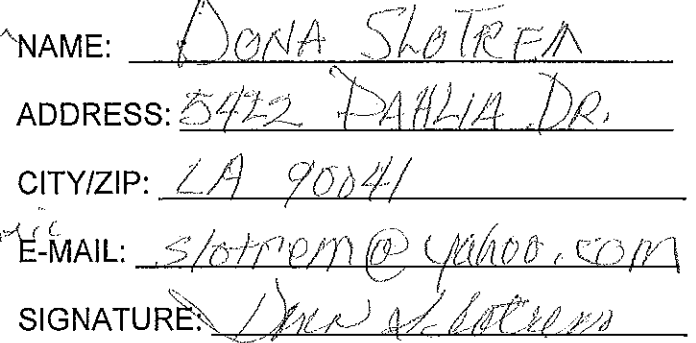 NAME: DONA SLOTREM
ADDRESS: 5422 DAHLIA DR.
CITY/ZIP: LA 90041
E-MAIL: slotrem@yahoo.com
SIGNATURE: Dona Slotrem